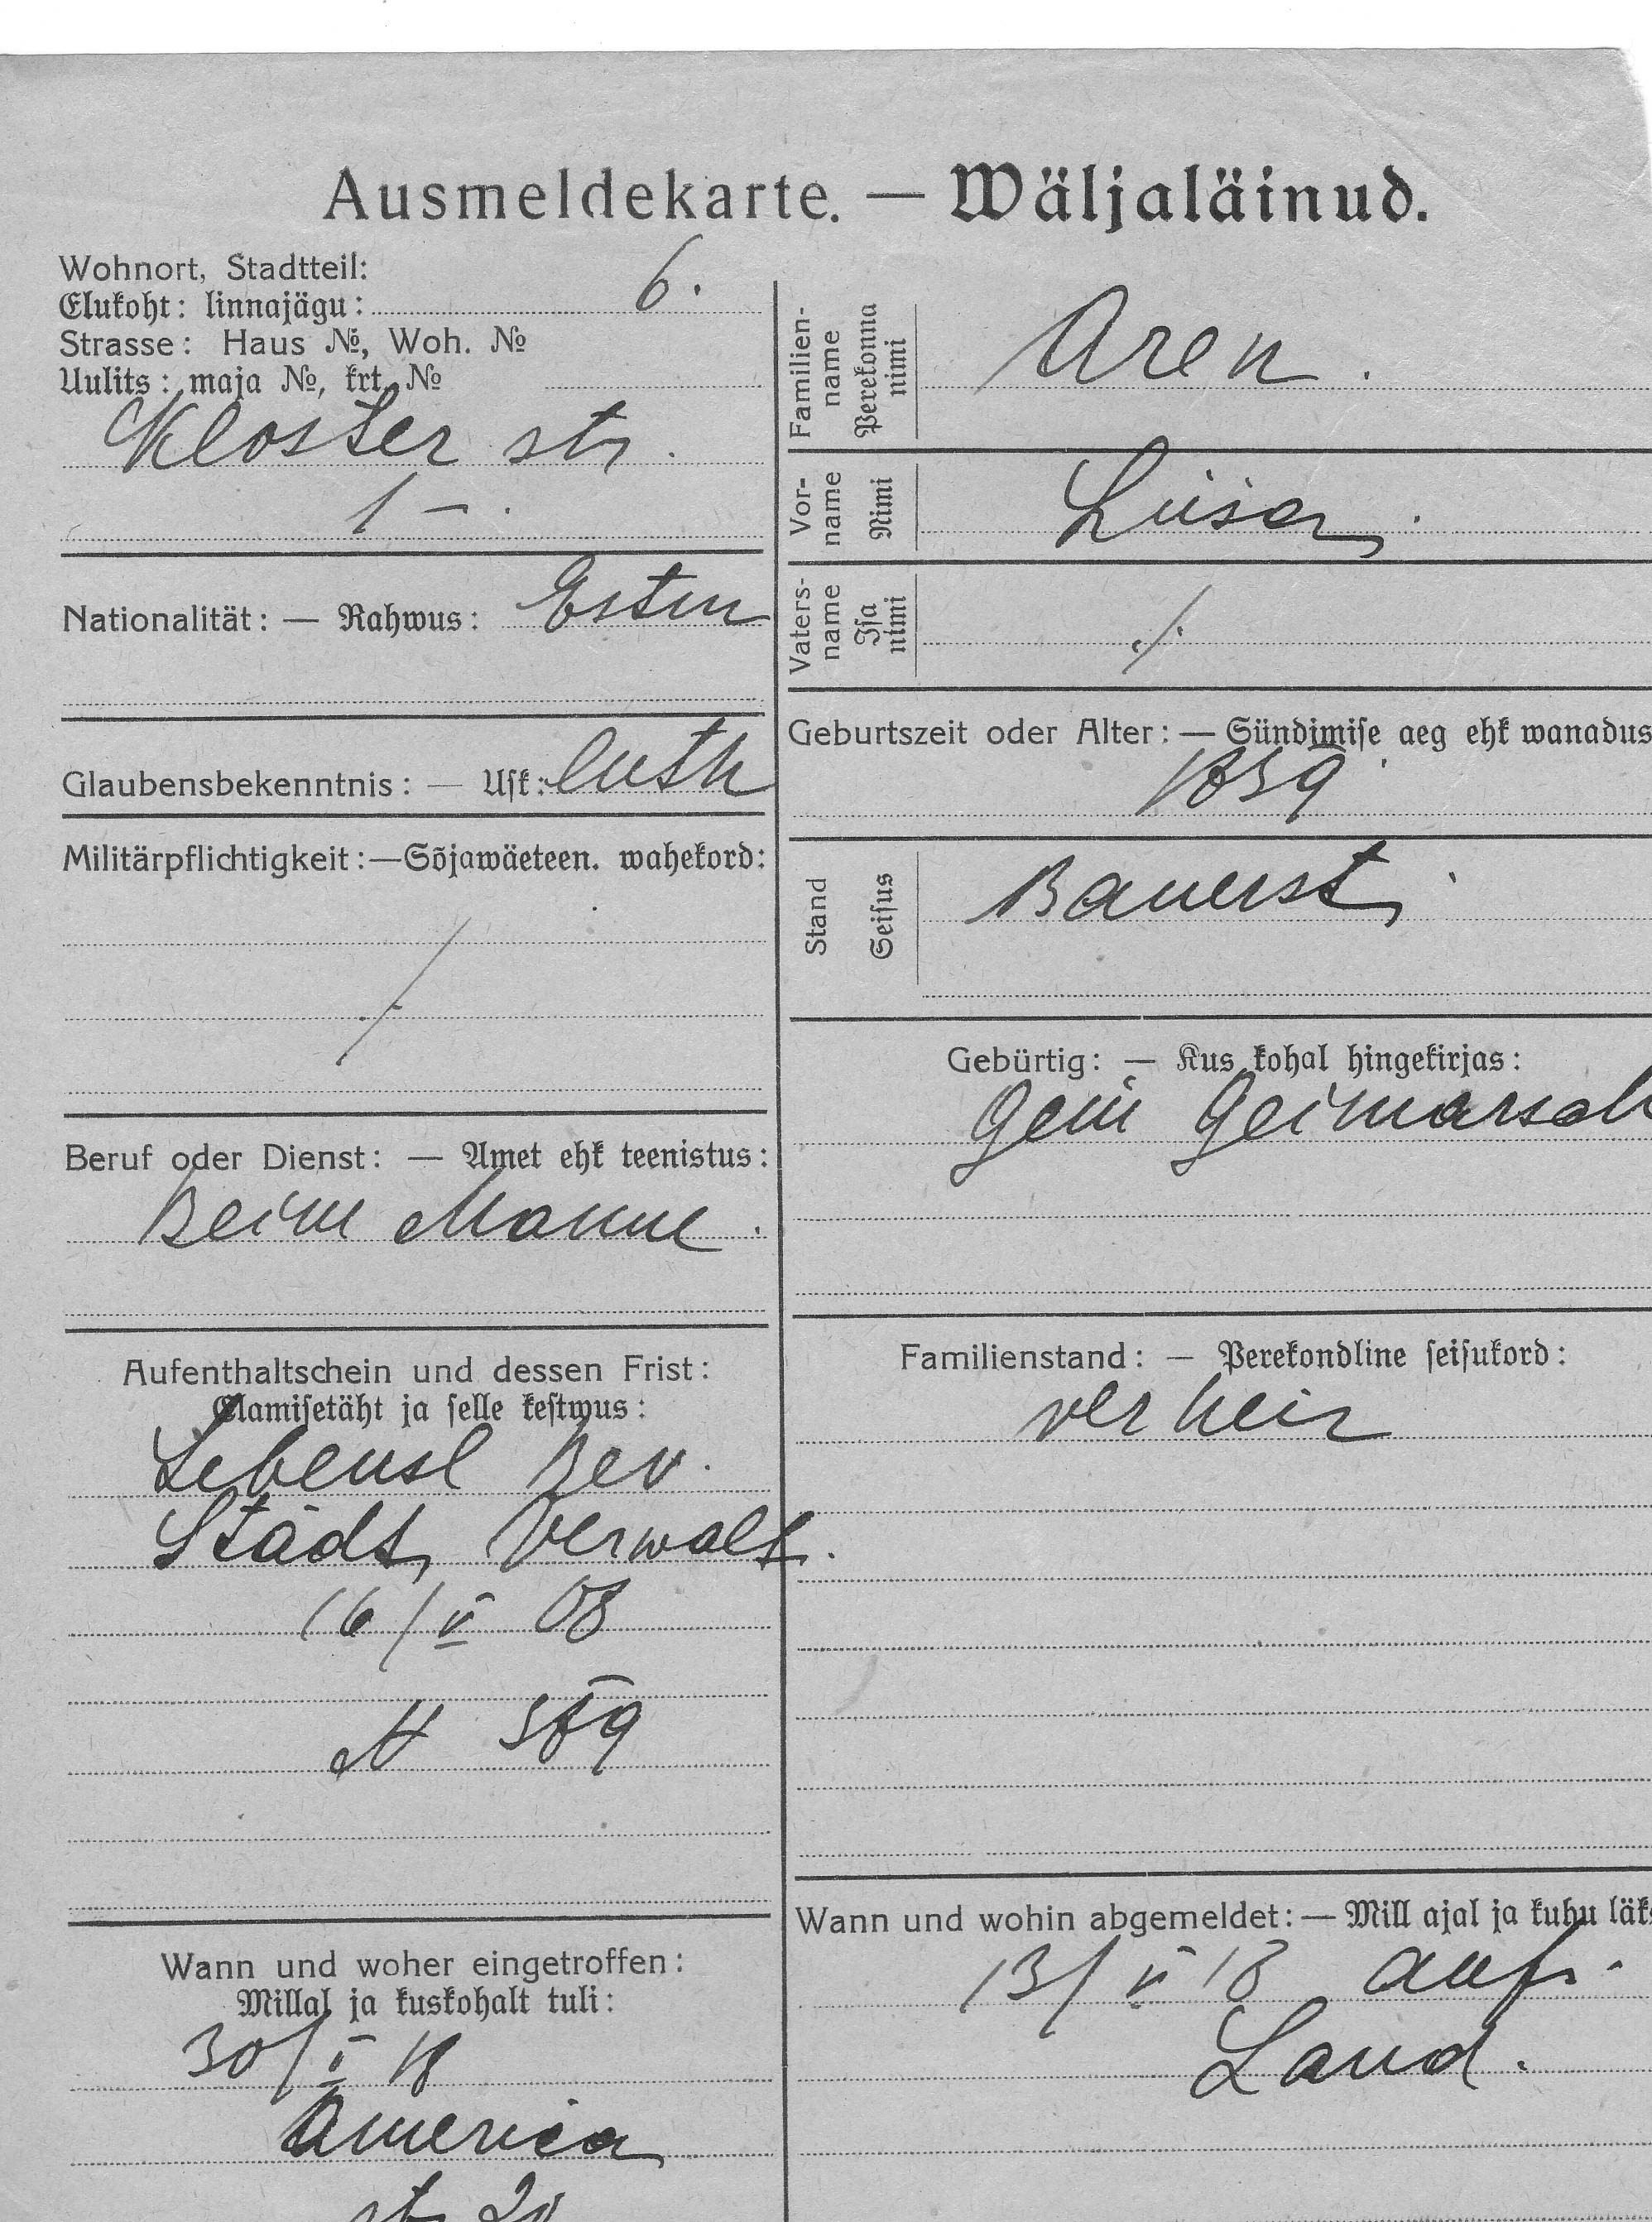 Ausmeldekarte. — Wäljaläinud.
Wohnort, Stadtteil:
Elukoht: linnajägu: 6.
Strasse: Haus №, Woh. №
Uulits: maja №, krt. №
Kloster str.
1 – .
Nationalität: — Rahwus: Estin
Glaubensbekenntnis: — Usk: luth
Militärpflichtigkeit:—Sõjawäeteen. wahekord:
Beruf oder Dienst: — Amet ehk teenistus:
Beim Manne.
Aufenthaltschein und dessen Frist:
Elamisetäht ja selle kestwus:
Lebensl Bev.
Städt. Verwalt.
16/V 08
№ 589
Wann und woher eingetroffen:
Millal ja kuskohalt tuli:
30/V 18
America
str 20
Familien-
name
Perekonna
nimi
Aren.
Vor-
name
Nimi
Liisa.
Vaters-
name
Isa
nimi
./.
Geburtszeit oder Alter: — Sündimise aeg ehk wanadus
1859
Stand
Seisus
Bauerst.
Gebürtig: — Kus kohal hingekirjas:
Gem
Familienstand: — Perekondline seisukord:
verheir
Wann und wohin abgemeldet: — Mill ajal ja kuhu läk
13/VI 18 aufs.
Land.